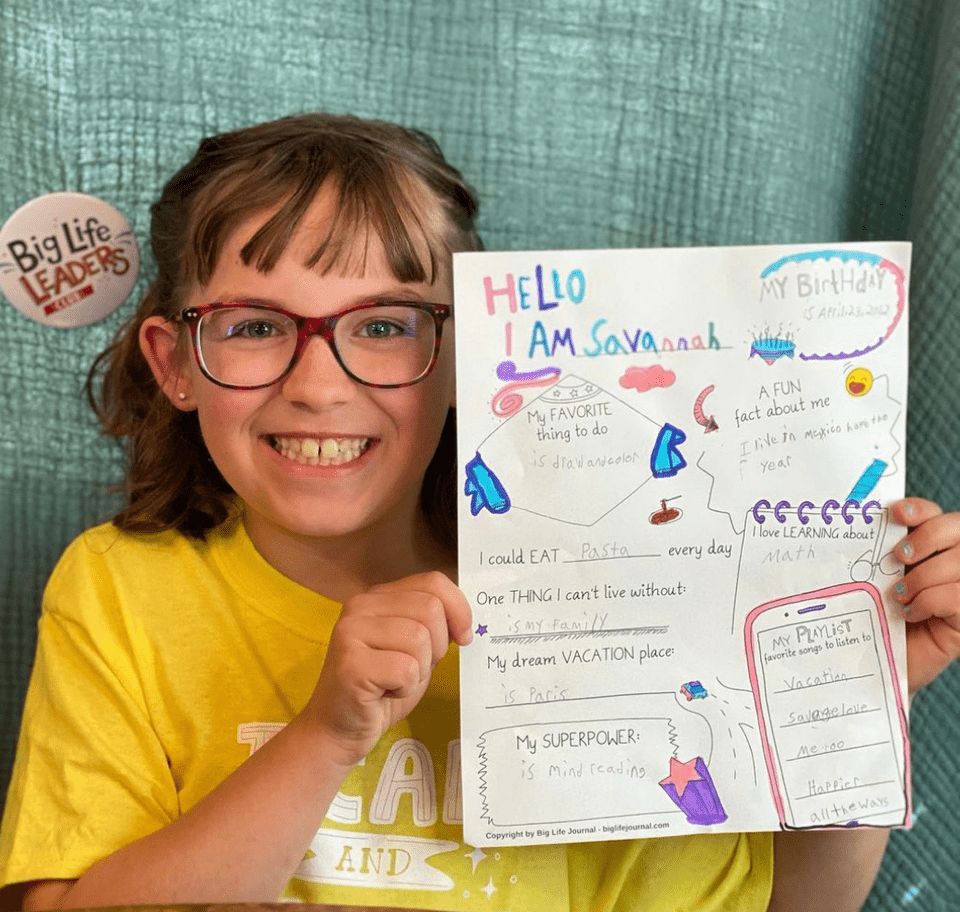 Big Life
LEADERS
CLUB
HELLO
I AM Savannah
MY BirtHdAY
is April 23, 2012
My FAVORITE
thing to do
is draw and color
A FUN
fact about me
I live in Mexico half the
year
I could EAT Pasta every day
I love LEARNING about
Math
One THING I can't live without:
is my family
My dream VACATION place:
is Paris
My SUPERPOWER:
is mind reading
MY PLAYLiST
favorite songs to listen to
Vacation
Savage love
Me too
Happier
all the ways
Copyright by Big Life Journal - biglifejournal.com
AND